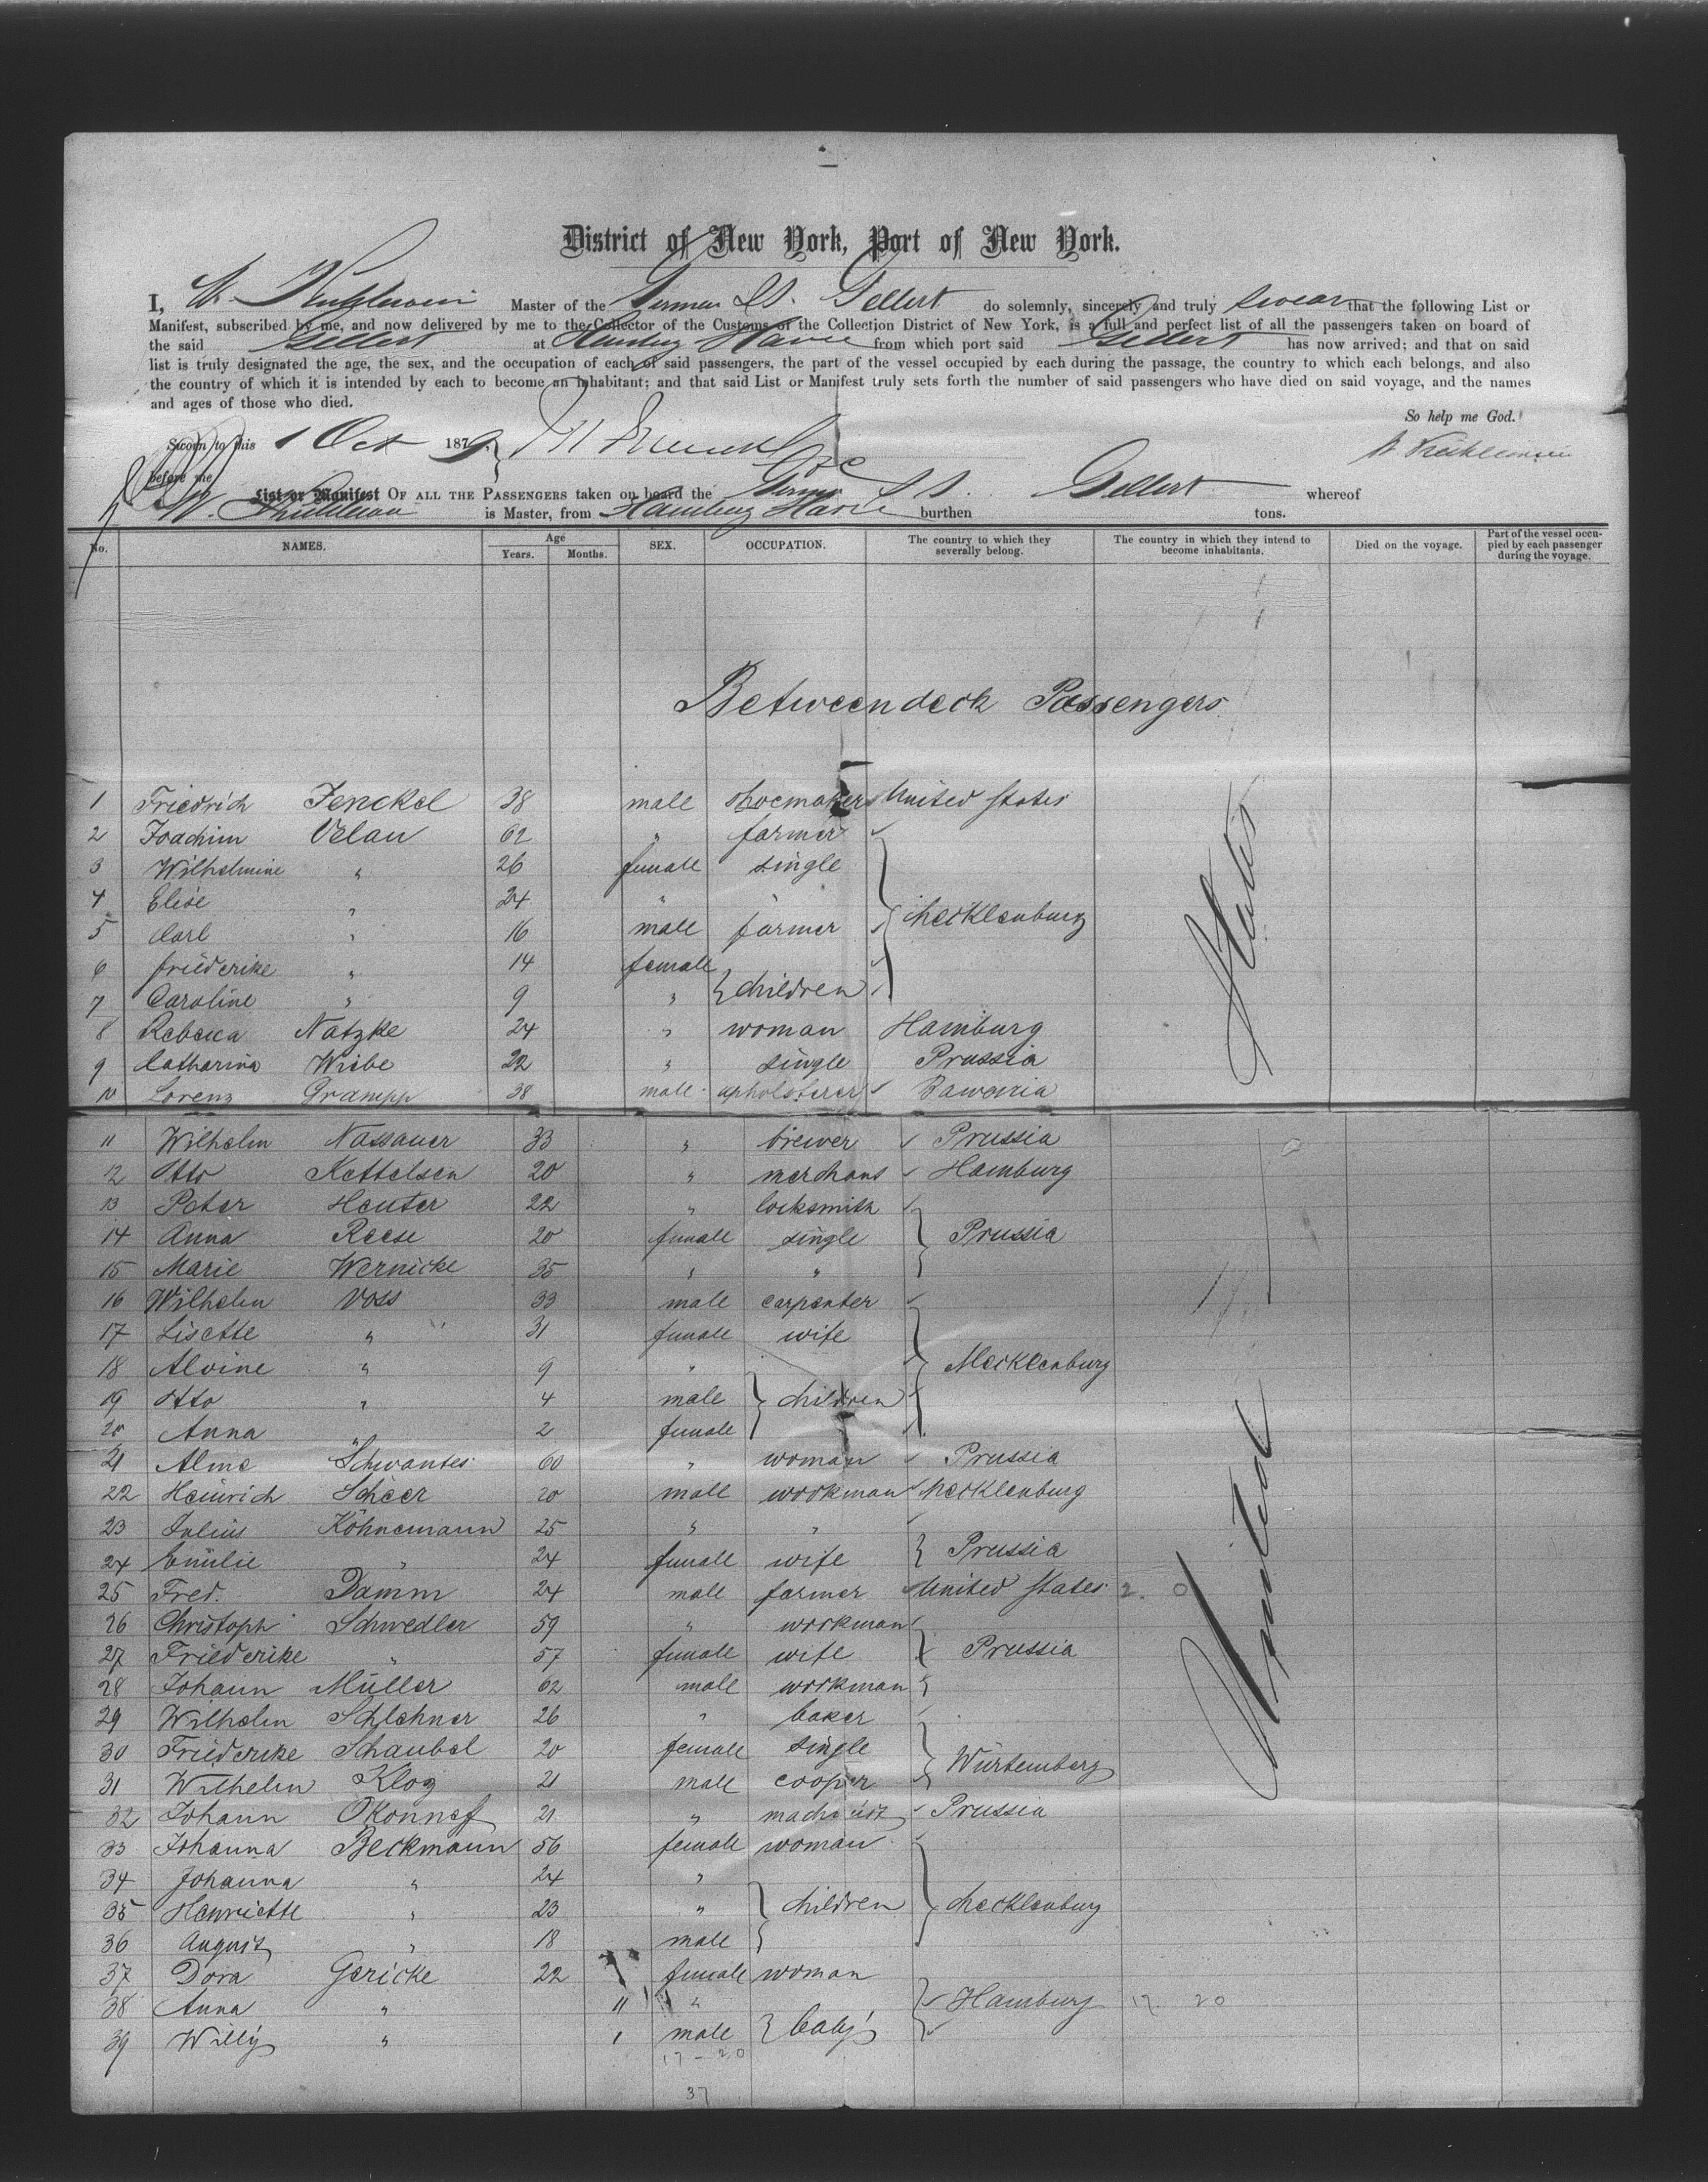 District of New York, Port of New York.
I, W. Kuhlewein Master of the German SS. Gellert do solemnly, sincerely and truly swear that the following List or
Manifest, subscribed by me, and now delivered by me to the Collector of the Customs of the Collection District of New York, is a full and perfect list of all the passengers taken on board of
the said Gellert at Hamburg Havre from which port said Gellert has now arrived; and that on said
list is truly designated the age, the sex, and the occupation of each of said passengers, the part of the vessel occupied by each during the passage, the country to which each belongs, and also
the country of which it is intended by each to become an inhabitant; and that said List or Manifest truly sets forth the number of said passengers who have died on said voyage, and the names
and ages of those who died.
So help me God.
Sworn to this 1 Oct 1879
before me
List or Manifest OF ALL THE PASSENGERS taken on board the German SS. Gellert whereof
is Master, from Hamburg Havre burthen tons.
No. NAMES. Age Years. Months. SEX. OCCUPATION. The country to which they severally belong. The country in which they intend to become inhabitants. Died on the voyage. Part of the vessel occupied by each passenger during the voyage.
Betweendeck Passengers
1 Friedrich Jenckel 38 male shoemaker United States
2 Joachim Velau 62 " farmer
3 Wilhelmine " 26 female single
4 Elise " 24 " "
5 Carl " 16 male farmer Mecklenburg
6 Friederike " 14 female
7 Caroline " 9 " children
8 Rebecca Natzke 24 " woman Hamburg
9 Catharina Wiebe 22 " single Prussia
10 Lorenz Grampp 38 male upholsterer Bawaria
11 Wilhelm Nassauer 33 " brewer Prussia
12 Otto Kettelsen 20 " merchant Hamburg
13 Peter Heuter 22 " locksmith
14 Anna Reese 20 female single Prussia
15 Marie Wernicke 35 " "
16 Wilhelm Voss 33 male carpenter
17 Lisette " 31 female wife
18 Alvine " 9 " Mecklenburg
19 Otto " 4 male children
20 Anna " 2 female
21 Alme Schwantes 60 " woman Prussia
22 Heinrich Scheer 20 male workman Mecklenburg
23 Julius Köhnemann 25 " "
24 Emilie " 24 female wife Prussia
25 Fred. Damm 24 male farmer United States 2. 0
26 Christoph Schwedler 59 " workman
27 Friederike " 57 female wife Prussia
28 Johann Müller 62 male workman
29 Wilhelm Schlehner 26 " baker
30 Friederike Schaubel 20 female single Würtemberg
31 Wilhelm Klog 21 male cooper
32 Johann Okonnef 21 " machinist Prussia
33 Johanna Beckmann 56 female woman
34 Johanna " 24 "
35 Henriette " 23 " children Mecklenburg
36 August " 18 male
37 Dora Gericke 22 female woman
38 Anna " 11 " Hamburg 17 20
39 Willy " 1 male baby's
17 - 20
37
United States